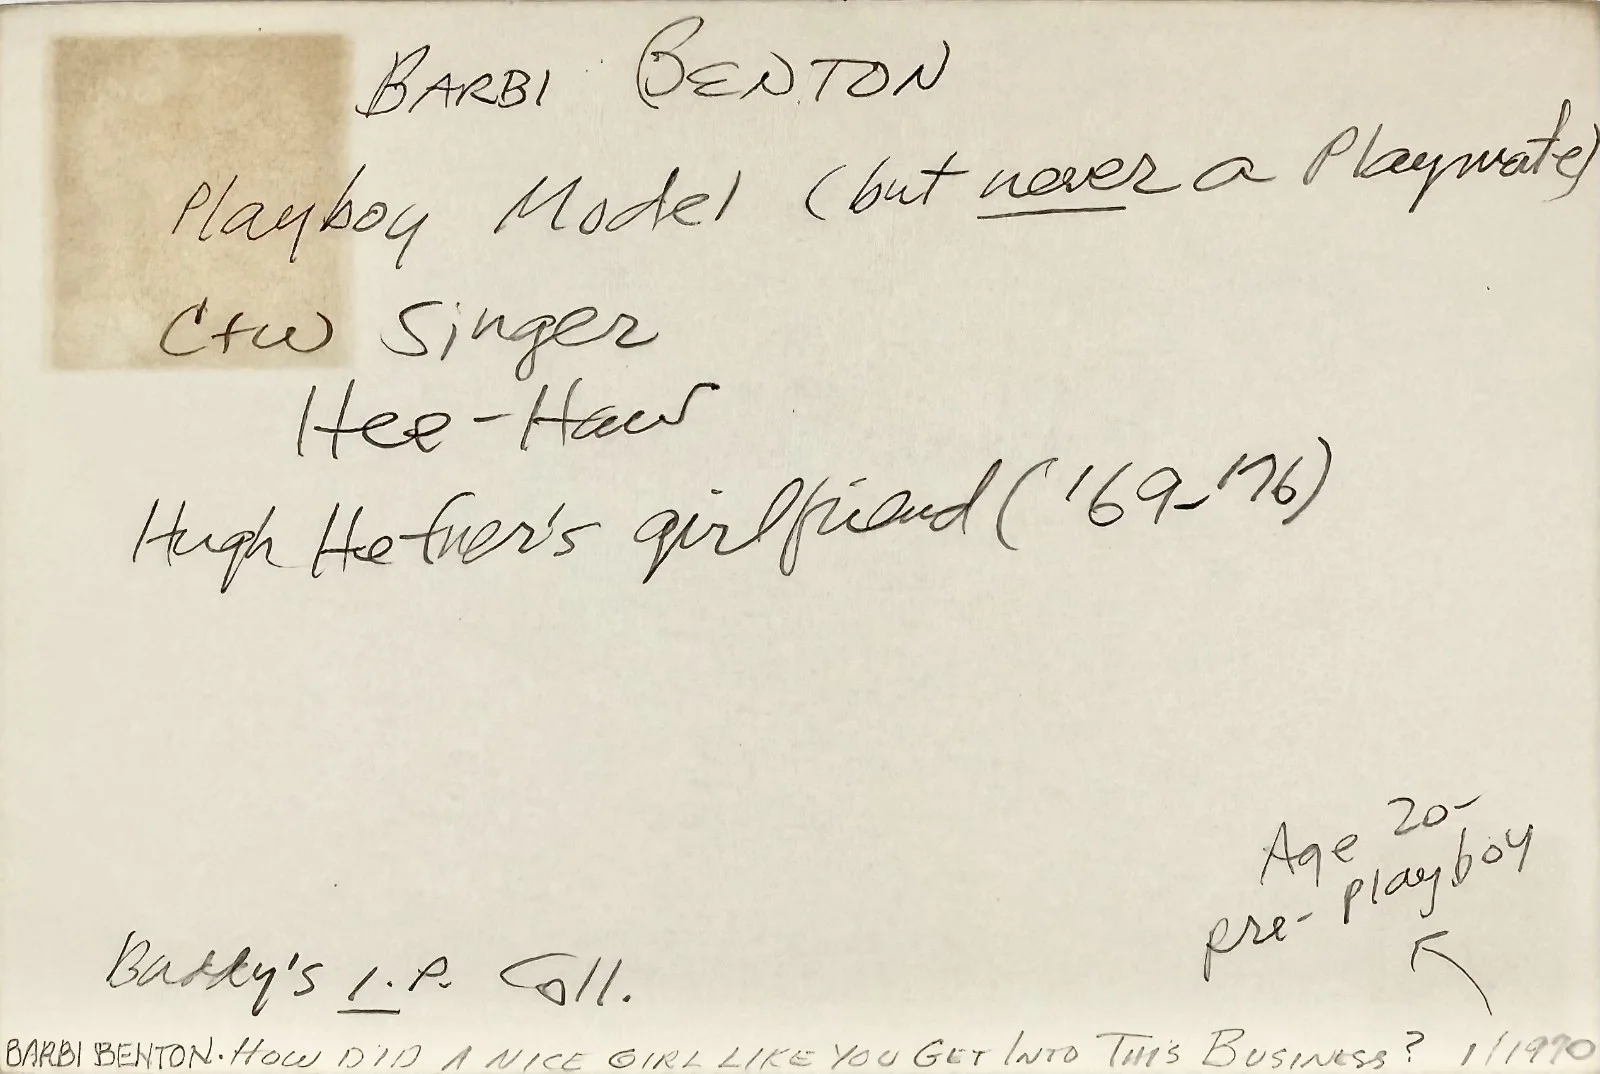 BARBI BENTON
Playboy Model (but never a Playmate)
C+W Singer
Hee-Haw
Hugh Hefner's girlfriend ('69-'76)
Age 20-
pre-playboy
Buddy's I.P. Coll.
BARBI BENTON. HOW DID A NICE GIRL LIKE YOU GET INTO THIS BUSINESS? 1/1970